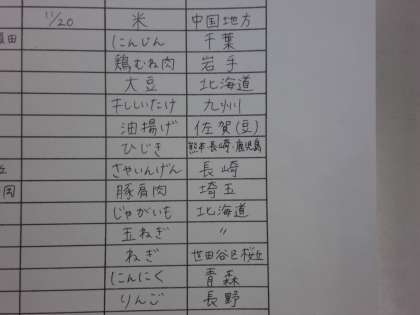 11/20 米 中国地方
にんじん 千葉
鶏むね肉 岩手
大豆 北海道
干ししいたけ 九州
油揚げ 佐賀(豆)
ひじき 熊本・長崎・鹿児島
さやいんげん 長崎
岡 豚肩肉 埼玉
じゃがいも 北海道
玉ねぎ 〃
ねぎ 世田谷区桜丘
にんにく 青森
りんご 長野